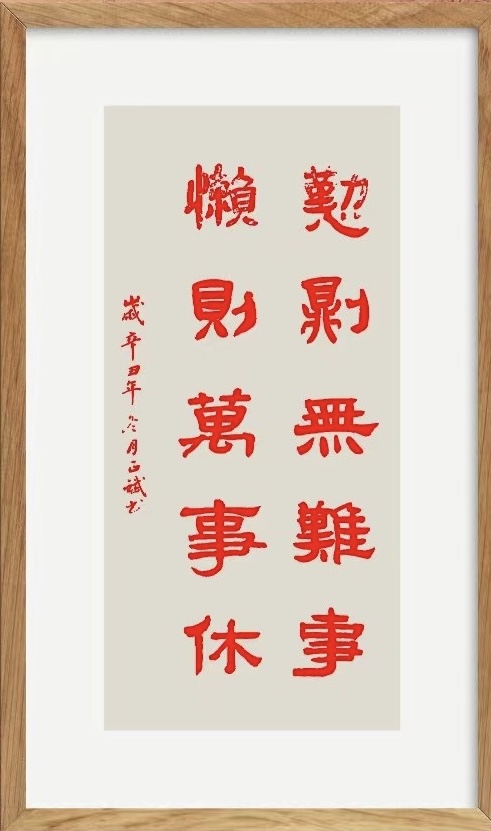 懃則無難事
懶則萬事休
歲辛丑年冬月正斌书